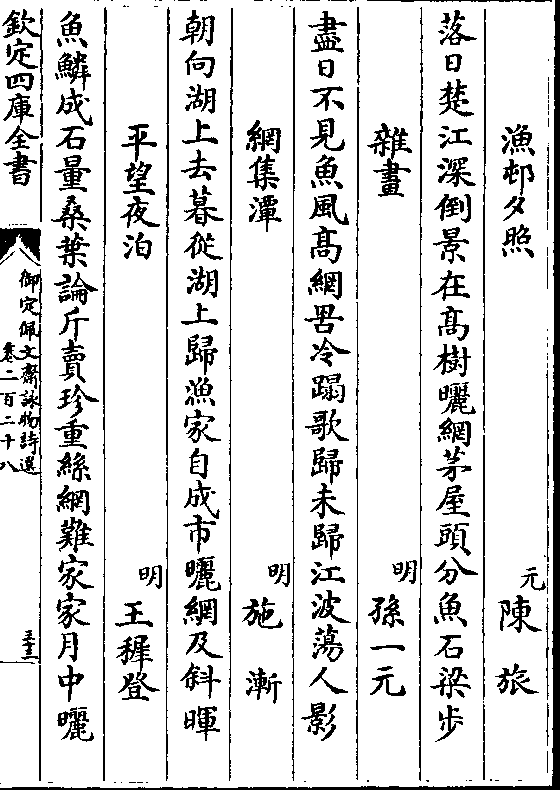 漁邨夕照
元 陳旅
落日楚江深倒景在髙樹曬網茅屋頭分魚石梁步
雜畫
明 孫一元
盡日不見魚風髙網罟冷蹋歌歸未歸江波蕩人影
網集潭
明 施漸
朝向湖上去暮從湖上歸漁家自成市曬網及斜暉
平望夜泊
明 王穉登
魚鱗成石量桑葉論斤賣珍重絲網難家家月中曬
欽定四庫全書
御定佩文齋詠物詩選
卷二百二十八